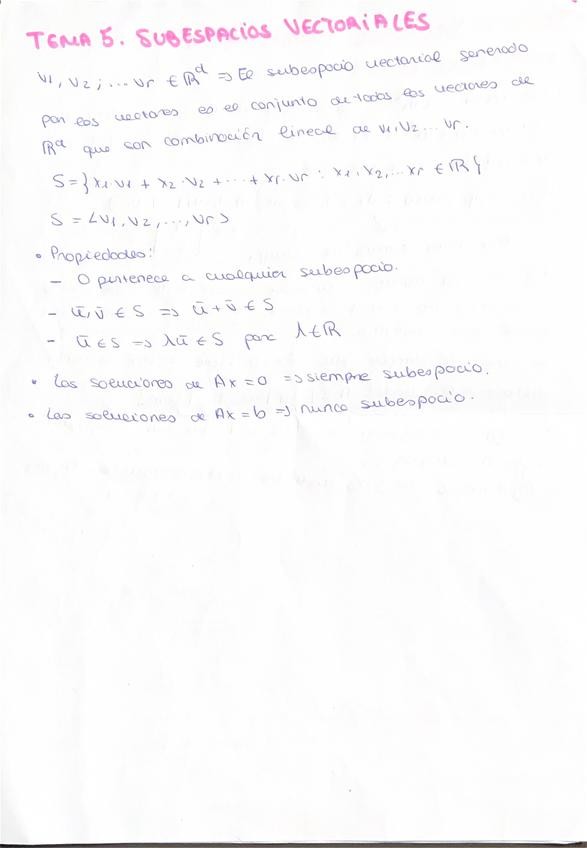 TEMA 5. SUBESPACIOS VECTORIALES
v1, v2, ... vr ∈ ℝᵈ ⇒ El subespacio vectorial generado
por los vectores es el conjunto de todos los vectores de
ℝᵈ que son combinación lineal de v1, v2 ... vr.
S = { x1·v1 + x2·v2 + ... + xr·vr : x1, x2, ... xr ∈ ℝ }
S = <v1, v2, ..., vr>
• Propiedades:
– 0 pertenece a cualquier subespacio.
– ū, v̄ ∈ S ⇒ ū + v̄ ∈ S
– ū ∈ S ⇒ λū ∈ S para λ ∈ ℝ
• Las soluciones de Ax = 0 ⇒ siempre subespacio.
• Las soluciones de Ax = b ⇒ nunca subespacio.